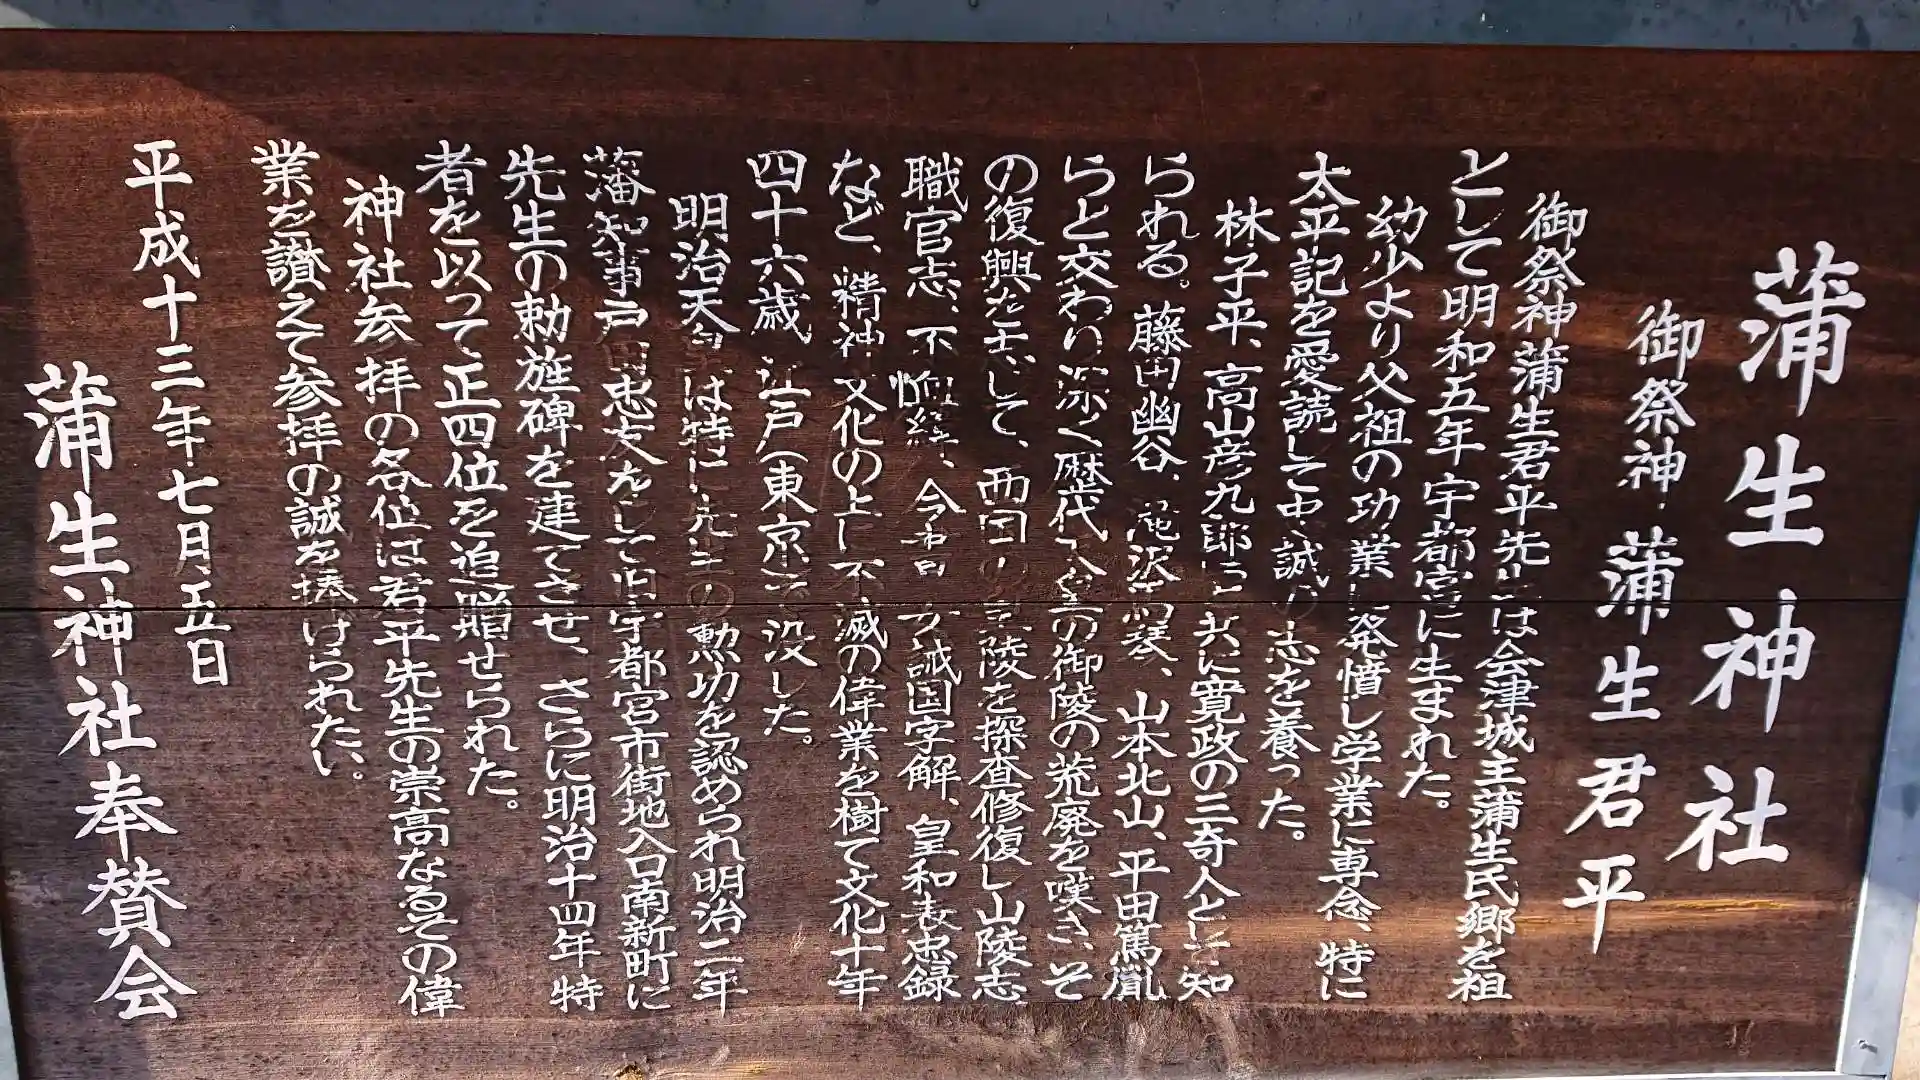 蒲生神社
御祭神 蒲生君平
御祭神蒲生君平先生は会津城主蒲生氏郷を祖
として明和五年宇都宮に生まれた。
幼少より父祖の功業に発憤し学業に専念、特に
太平記を愛読して忠誠の志を養った。
林子平、高山彦九郎と共に寛政の三奇人として知
られる。藤田幽谷、滝沢馬琴、山本北山、平田篤胤
らと交わり深く歴代天皇の御陵の荒廃を嘆き、そ
の復興を志して、西国の陵を探査修復し山陵志
職官志、不恤緯、今書、女誡国字解、皇和表忠録
など、精神文化の上に不滅の偉業を樹て文化十年
四十六歳 江戸(東京)で没した。
明治天皇は特に先生の勲功を認められ明治二年
藩知事戸田忠友をして旧宇都宮市街地入口南新町に
先生の勅旌碑を建てさせ、さらに明治十四年特
者を以って正四位を追贈せられた。
神社参拝の各位は君平先生の崇高なるその偉
業を讃えて参拝の誠を捧げられたい。
平成十三年七月五日
蒲生神社奉賛会